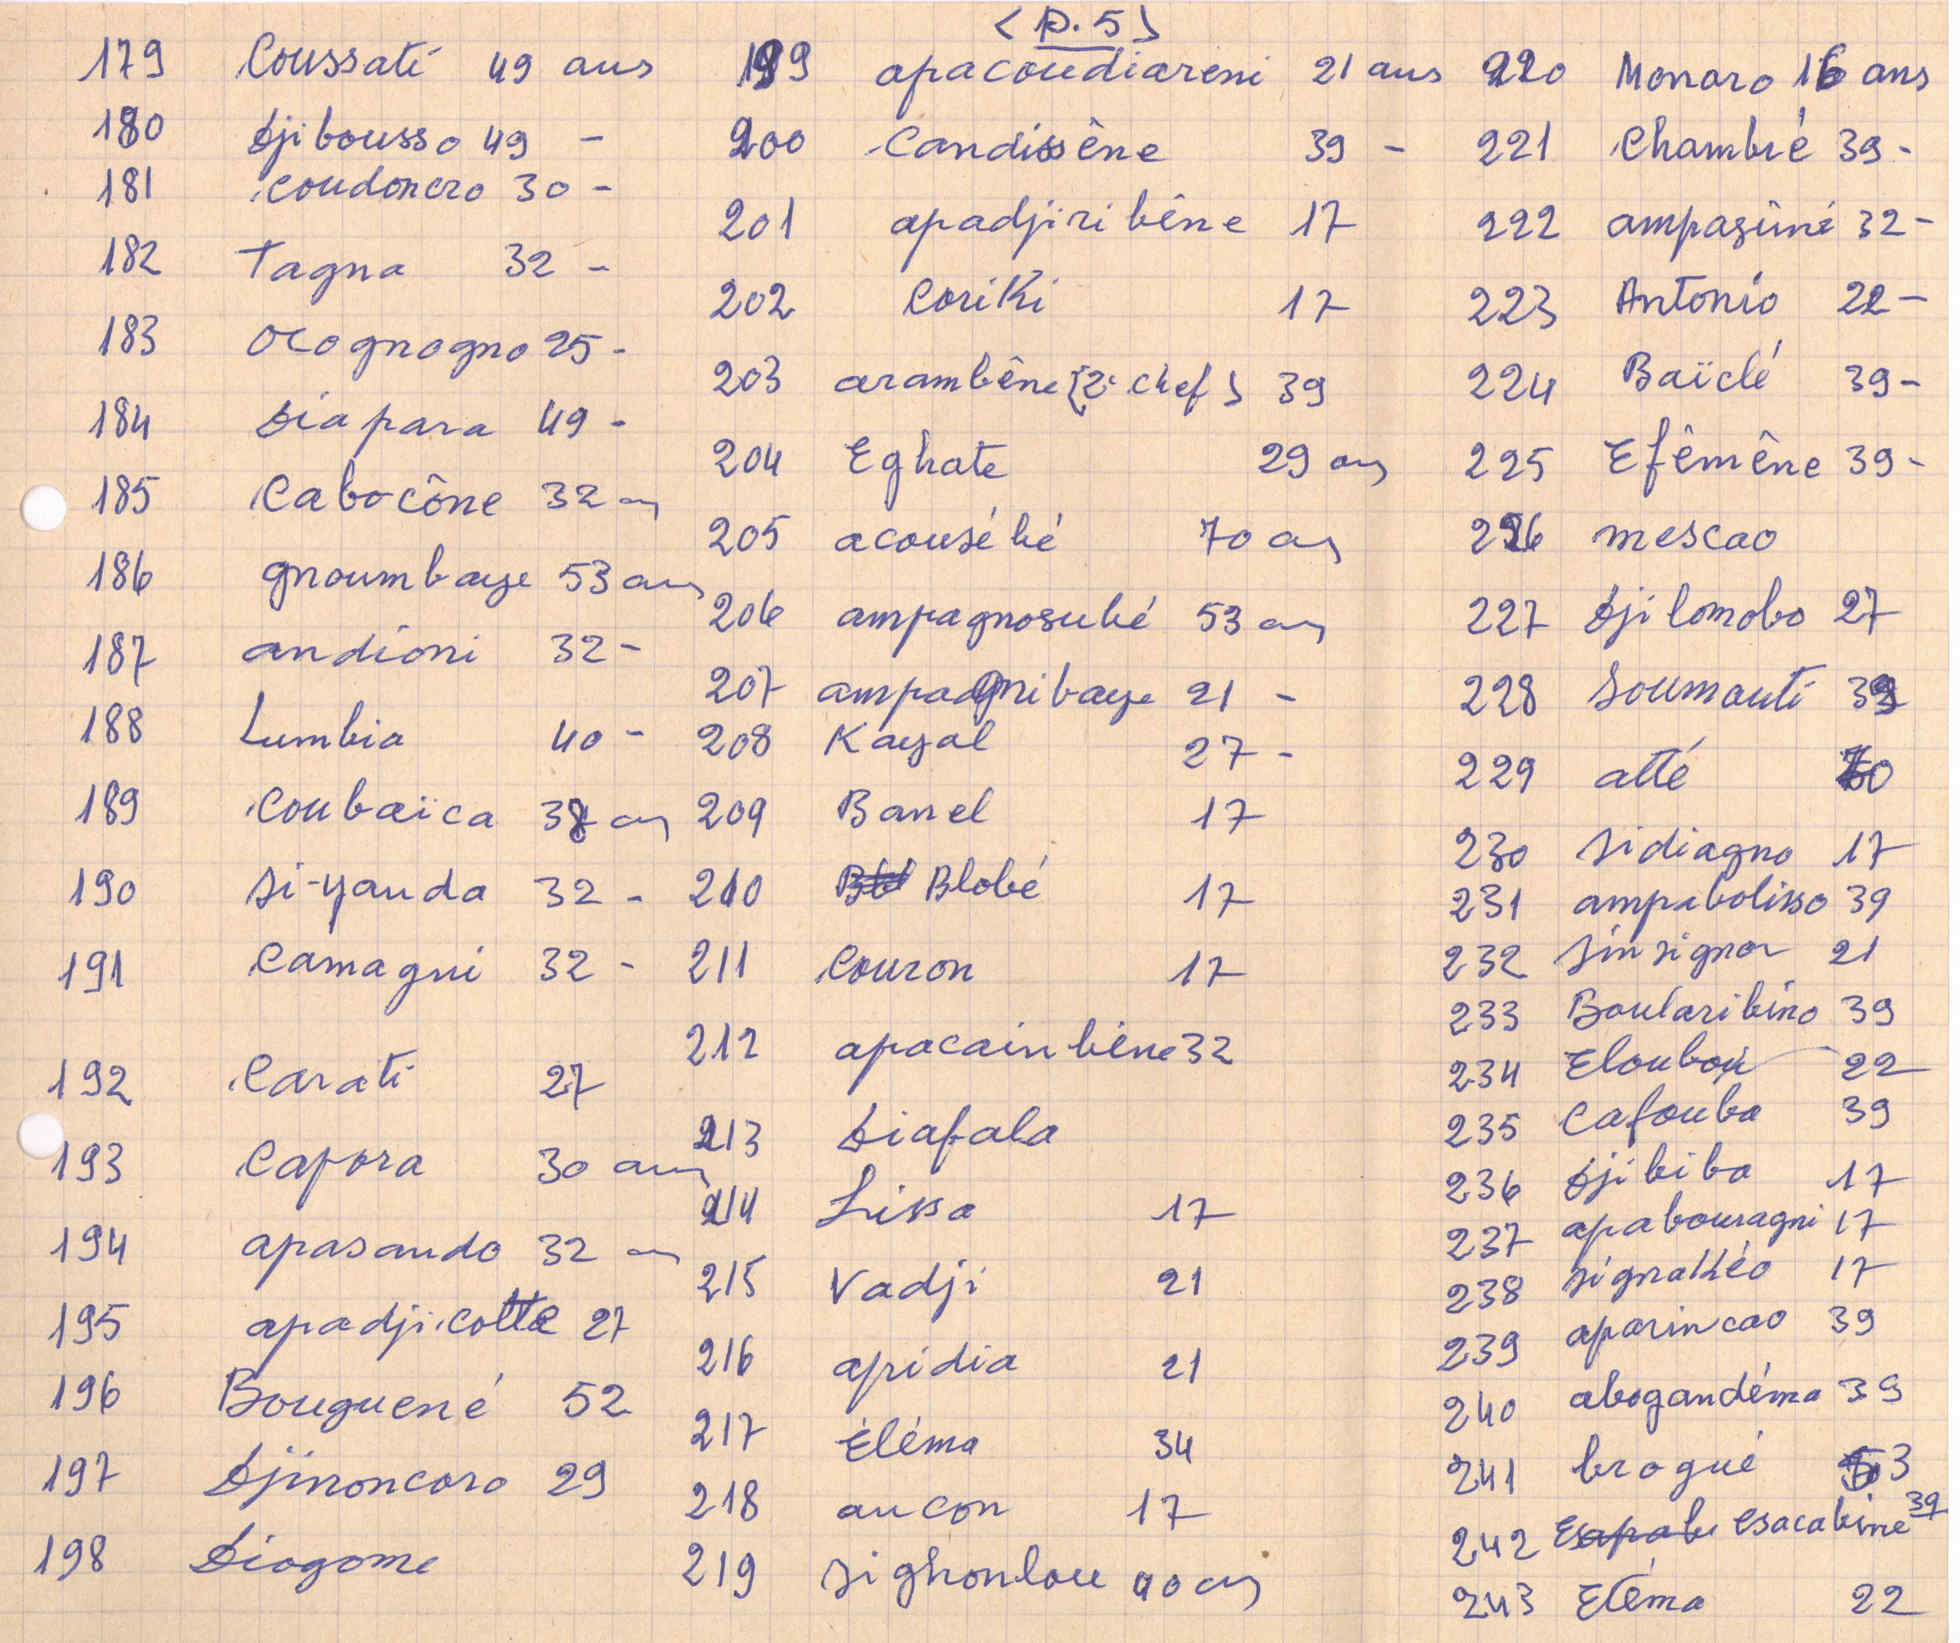 (p. 5)
179 Coussati 49 ans
180 Djibousso 49 -
181 coudoncro 30 -
182 Tagna 32 -
183 ocognogno 25 -
184 Diapara 49 -
185 Cabocône 32 ans
186 gnoumbaye 53 ans
187 andioni 32 -
188 Lumbia 40 -
189 coubaïca 38 ans
190 Si-yanda 32 -
191 Camagni 32 -
192 Carati 27
193 Capora 30 ans
194 apasando 32 ans
195 apadji cotte 27
196 Bouguené 52
197 Djinoncoro 29
198 Diogome
199 apacoudiareni 21 ans
200 Candissène 39 -
201 apadjiribène 17
202 Coriki 17
203 arambêne (2e chef) 39
204 Eghate 29 ans
205 acousébé 70 ans
206 ampagnosubé 53 ans
207 ampagnibaye 21 -
208 Kayal 27 -
209 Banel 17
210 Blobé 17
211 Couron 17
212 apacainbène 32
213 Diafala
214 Lissa 17
215 Vadji 21
216 apidia 21
217 Éléma 34
218 aucon 17
219 Sighonlou 40 ans
220 Monaro 16 ans
221 Chambré 39 -
222 ampasimé 32 -
223 Antonio 22 -
224 Baïclé 39 -
225 Efêmêne 39 -
226 mescao
227 Djilomobo 27
228 Soumouti 39
229 atté
230 Sidiagno 17
231 ampabolisso 39
232 Sinsignor 21
233 Boularibino 39
234 Elouboi 22
235 Cafouba 39
236 Djibiba 17
237 apabouragni 17
238 Signakéo 17
239 aparincao 39
240 abogandéma 39
241 brogué 53
242 Esapabe esacabine 39
243 Etéma 22